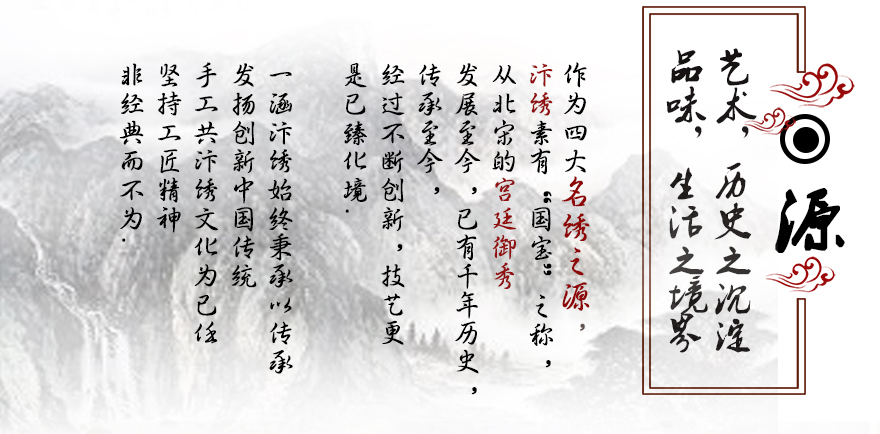 源
艺术，历史之沉淀
品味，生活之境界
作为四大名绣之源，
汴绣素有“国宝”之称，
从北宋的宫廷御秀
发展至今，已有千年历史，
传承至今，
经过不断创新，技艺更
是已臻化境.
一涵汴绣始终秉承以传承
发扬创新中国传统
手工共汴绣文化为已任
坚持工匠精神
非经典而不为.